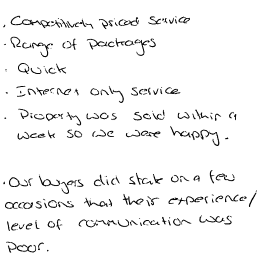 · Competitively priced service
· Range of packages
· Quick
· Internet only service
· Property was sold within a
week so we were happy.
· Our buyers did state on a few
occasions that their experience/
level of communication was
poor.